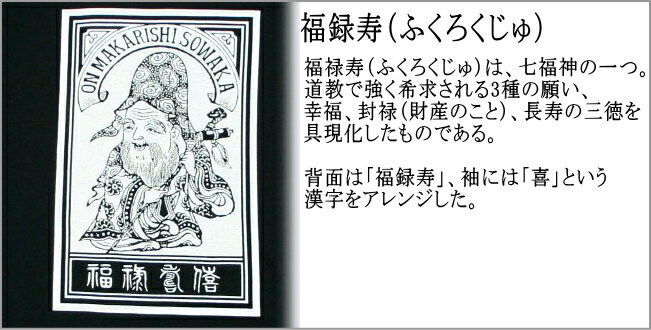 ON MAKARISHI SOWAKA
福禄壽僖
福録寿(ふくろくじゅ)
福禄寿(ふくろくじゅ)は、七福神の一つ。
道教で強く希求される3種の願い、
幸福、封禄(財産のこと)、長寿の三徳を
具現化したものである。
背面は「福録寿」、袖には「喜」という
漢字をアレンジした。